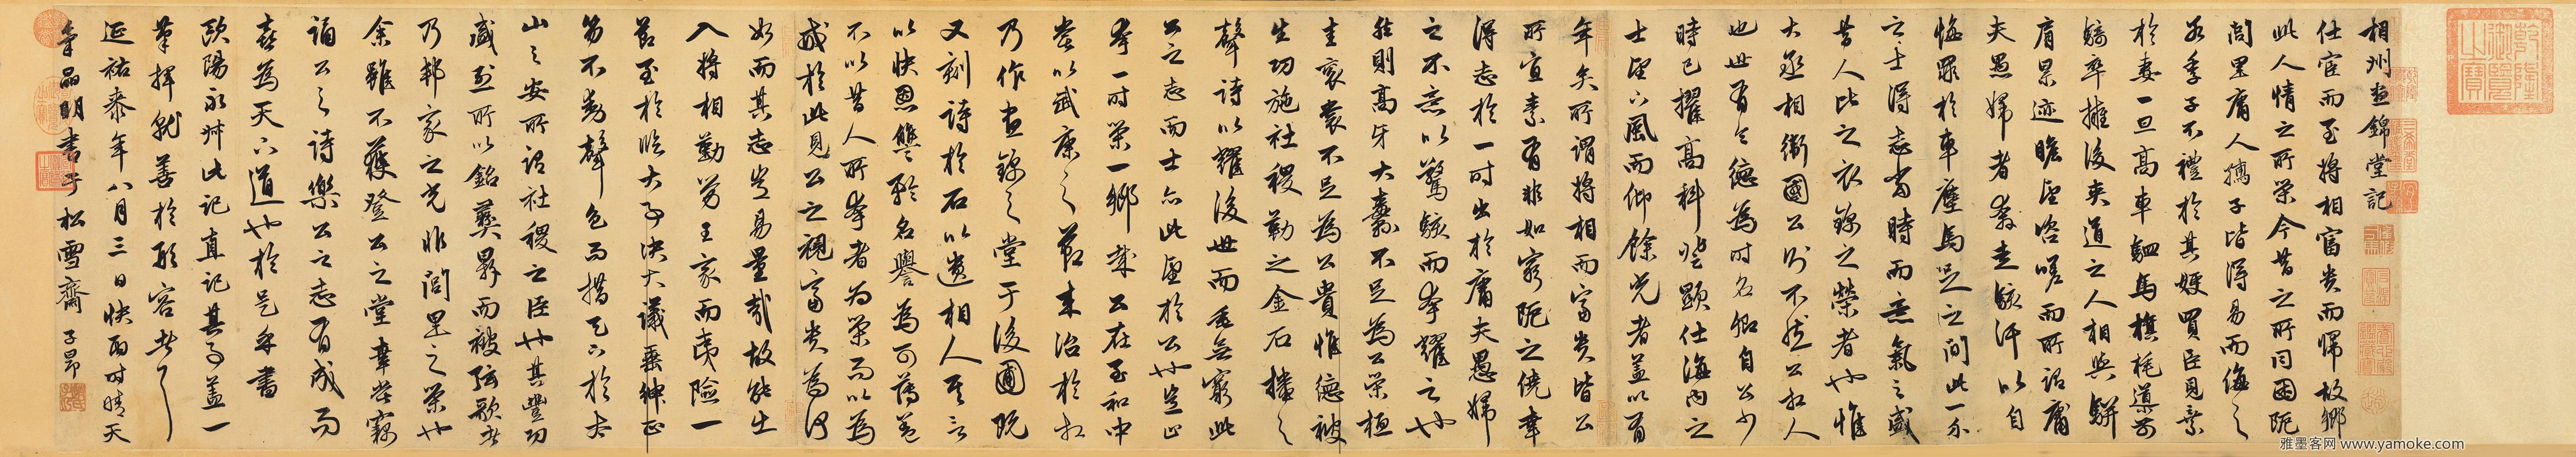 相州晝錦堂記
仕宦而至將相富貴而歸故鄉
此人情之所榮今昔之所同困阨
閭里庸人孺子皆得易而侮之
若季子不禮於其嫂買臣見棄
於妻一旦高車駟馬旗旄導前
騎卒擁後夾道之人相與駢
肩累迹瞻望咨嗟而所謂庸
夫愚婦者奔走駭汗以自
悔罪於車塵馬足之間此一介
之士得志當時而意氣之盛
昔人比之衣錦之榮者也惟
大丞相衛國公則不然公相人
也世有令德為時名卿自公少
時已擢高科登顯仕海內之
士望下風而仰餘光者蓋以有
年矣所謂將相而富貴皆公
所宜素有非如窮阨之僥幸
得志於一時出於庸夫愚婦
之不意以驚駭而夸耀之也
然則高牙大纛不足為公榮桓
圭袞裳不足為公貴惟德被
生功施社稷勒之金石播之
聲詩以耀後世而垂無窮此
公之志而士亦此望於公也豈止
夸一時榮一鄉哉公在至和中
嘗以武康之節來治於相
乃作晝錦之堂于後圃既
又刻詩於石以遺相人其言
以快恩讎矜名譽為可薄蓋
不以昔人所夸者為榮而以為
戒於此見公之視富貴為何
如而其志豈易量哉故能出
入將相勤勞王家而夷險一
節至於臨大事決大議垂紳正
笏不動聲色而措天下於太
山之安所謂社稷之臣也其豐功
盛烈所以銘彝鼎而被弦歌者
乃邦家之光非閭里之榮也
余雖不獲登公之堂幸嘗竊
誦公之詩樂公之志有成而
喜為天下道也於是乎書
歐陽永叔此記真記其事蓋一
筆揮就善於形容者
延祐泰年八月三日快雨時晴天
氣品明書于松雪齋 子昂
乾隆御覽之寶
雅墨客网 www.yamoke.com